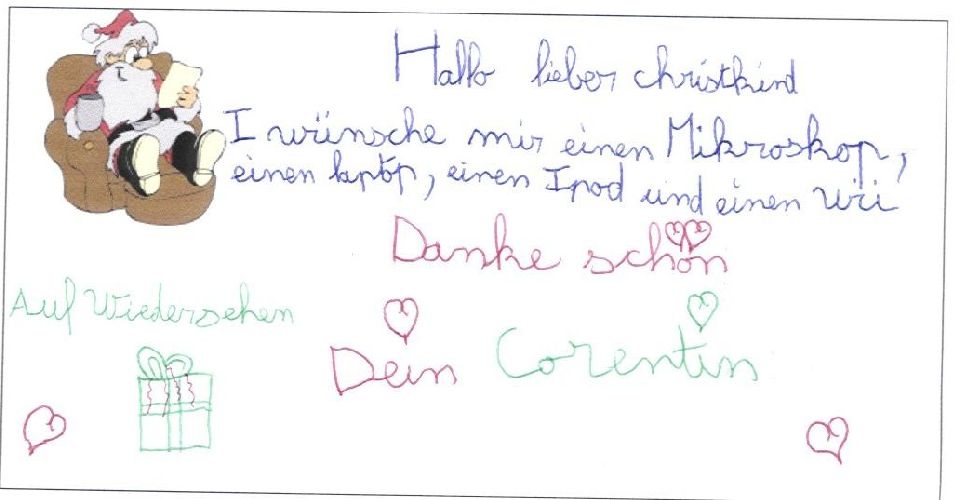 Hallo lieber christkind
I wünsche mir einen Mikroskop,
einen laptop, einen Ipod und einen Wii
Danke schön
Auf Wiedersehen
Dein Corentin